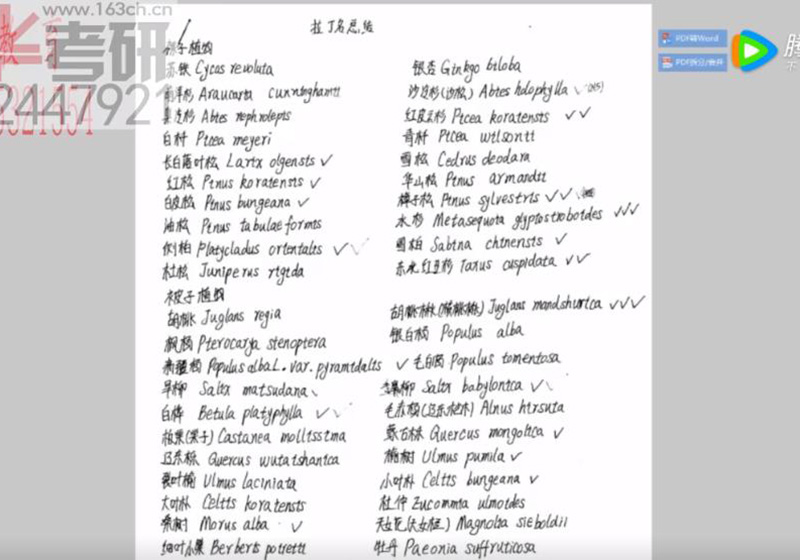 www.163ch.cn
考研
244792
3521554
拉丁名总结
裸子植物
苏铁 Cycas revoluta 银杏 Ginkgo biloba
南洋杉 Araucarta cunninghamtt 沙松(沙松) Abtes holophylla
臭冷杉 Abtes nephrolepts 红皮云杉 Ptcea koratensts
白杆 Ptcea meyeri 青杆 Ptcea wtlsontt
长白落叶松 Lartx olgensts 雪松 Cedrus deodara
红松 Ptnus koratensts 华山松 Ptnus armandtt
白皮松 Ptnus bungeana 樟子松 Ptnus sylvestrts
油松 Ptnus tabulaeformts 水杉 Metasequota glyptostrobotdes
侧柏 Platycladus ortentalts 圆柏 Sabtna chtnensts
杜松 Juniperus rtgtda 东北红豆杉 Taxus cuspidata
被子植物
胡桃 Juglans regia 胡桃楸(核桃楸) Juglans mandshurtca
枫杨 Pterocarya stenoptera 银白杨 Populus alba
新疆杨 Populus alba L. var. pyramtdalts 毛白杨 Populus tomentosa
旱柳 Saltx matsudana 垂柳 Saltx babylontca
白桦 Betula platyphylla 毛赤杨(辽东桤木) Alnus htrsuta
板栗(栗子) Castanea molltsstma 蒙古栎 Quercus mongoltca
辽东栎 Quercus wutatshantca 榆树 Ulmus pumila
裂叶榆 Ulmus laciniata 小叶朴 Celtts bungeana
大叶朴 Celtts koratensts 杜仲 Zucomma ulmotdes
桑树 Morus alba 天女花(天女木兰) Magnolta sieboldii
细叶小檗 Berberts potrettt 牡丹 Paeonia suffruticosa
PDF转Word
PDF拆分/合并
腾